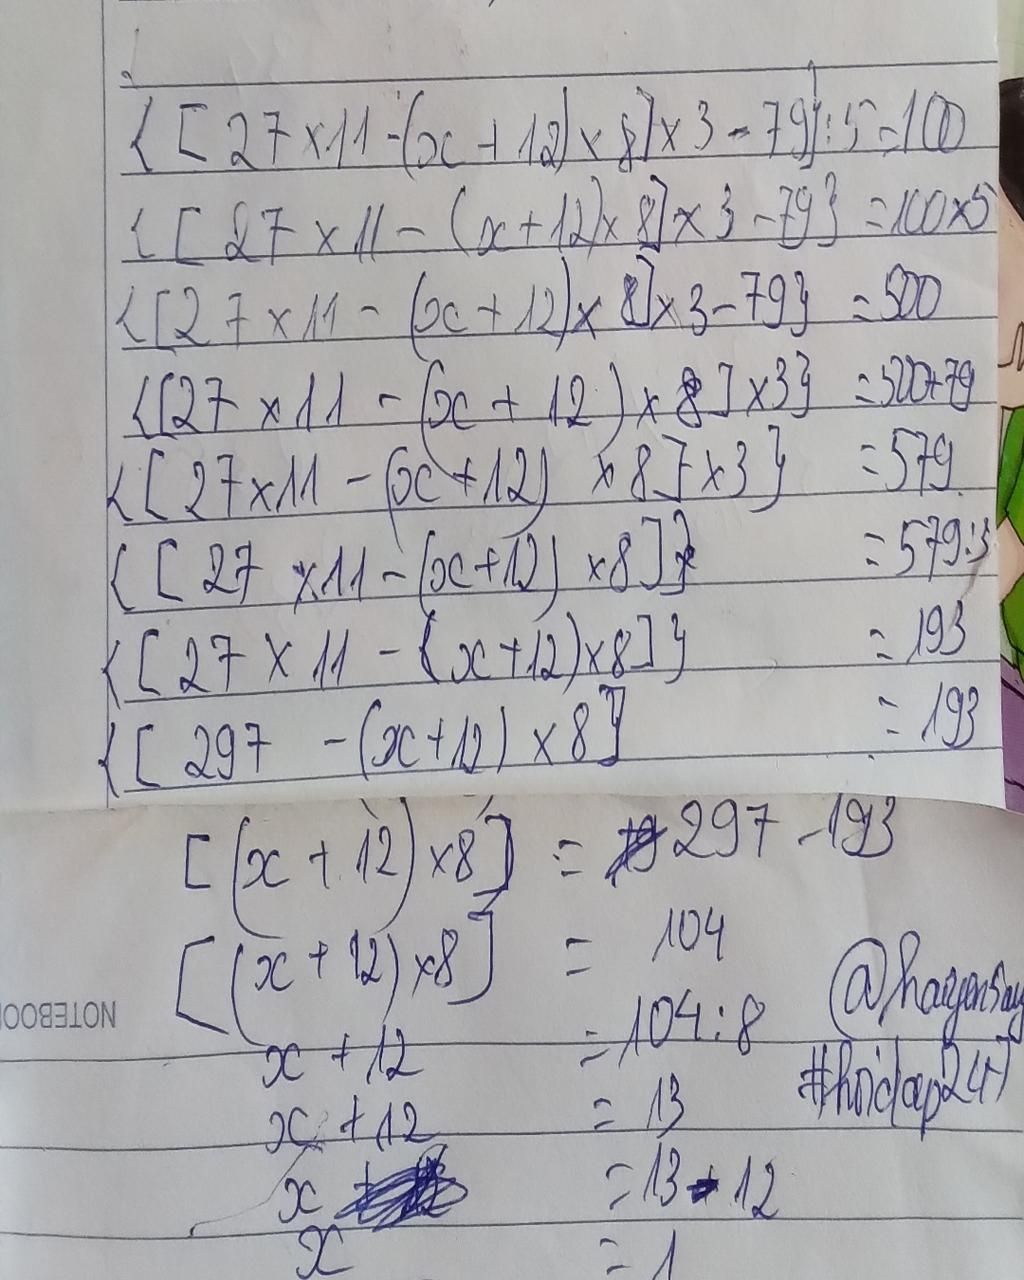 {[27×11-(x+12)×8]×3-79}:5=100
{[27×11-(x+12)×8]×3-79}=100×5
{[27×11-(x+12)×8]×3-79}=500
{[27×11-(x+12)×8]×3}=500+79
{[27×11-(x+12)×8]×3}=579
{[27×11-(x+12)×8]}=579:3
{[27×11-(x+12)×8]}=193
{[297-(x+12)×8]}=193
[(x+12)×8]=297-193
[(x+12)×8]=104
x+12=104:8
x+12=13
x=13-12
x=1
NOTEBOO
#hoidap247